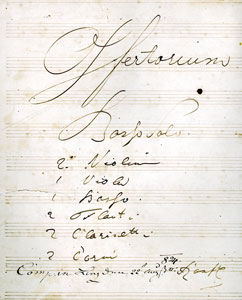 Offertorium
Basso solo.
2 Violini
1 Viola
1 Basso.
2 Flauti
2 Clarinetti
2 Corni
Comp. in